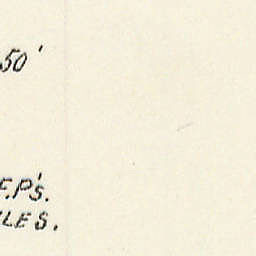 50'
F.P's.
LES.